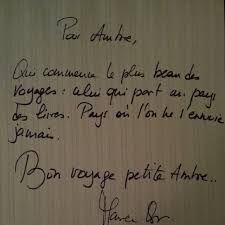 Pour Ambre,
Qui commence le plus beau des
voyages : celui qui part au pays
des livres. Pays où l'on ne s'ennuie
jamais.
Bon voyage petite Ambre..